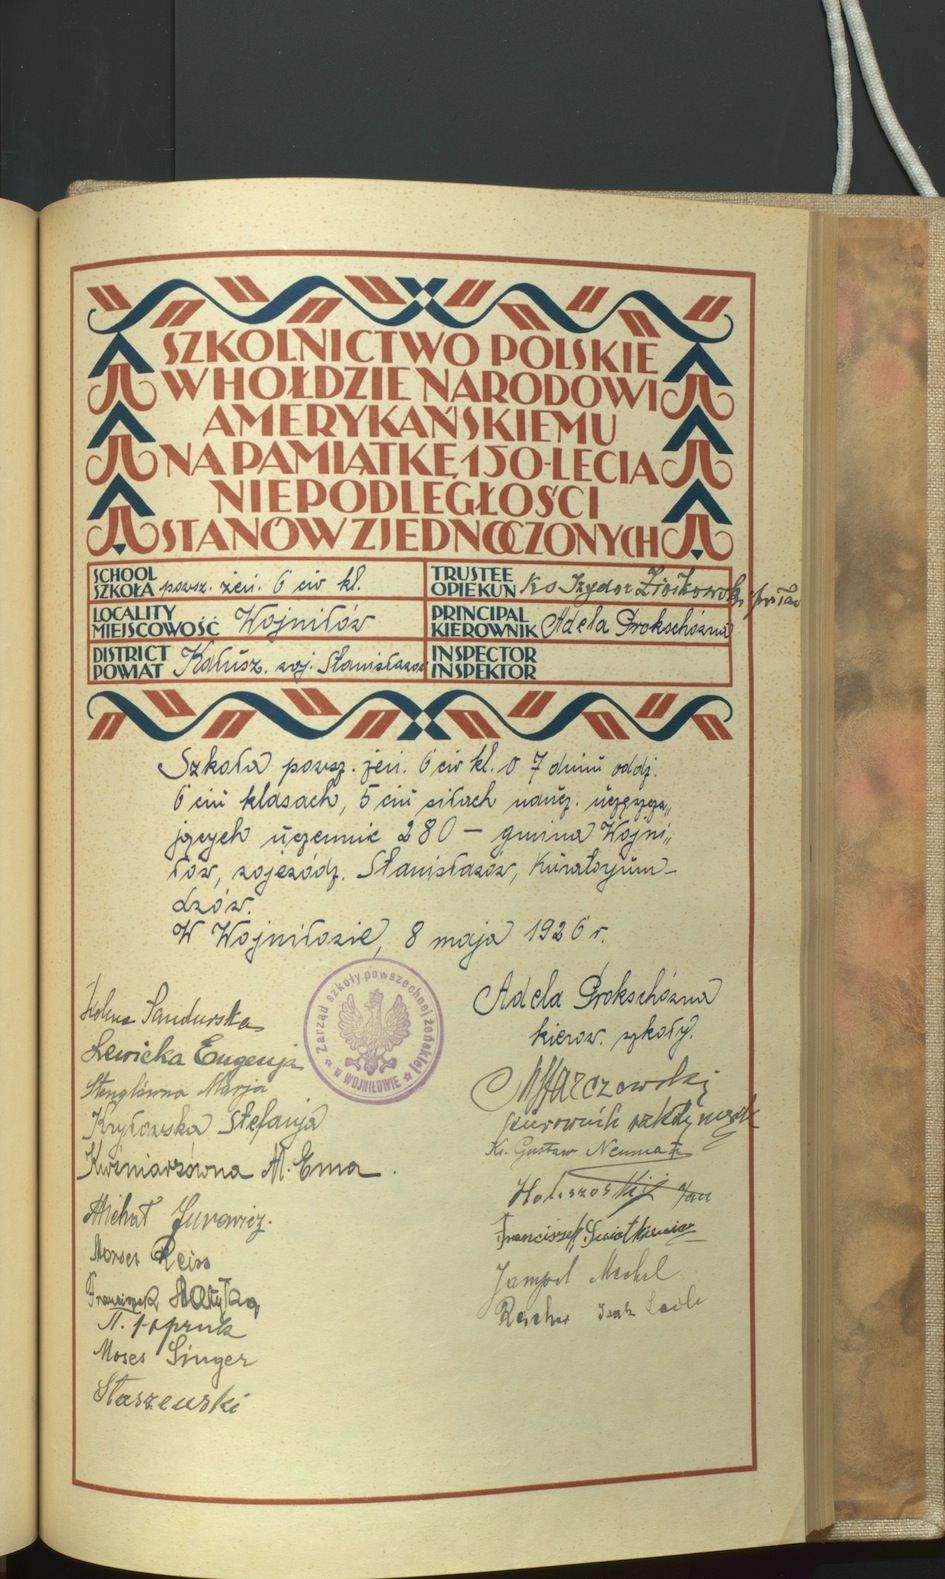 SZKOLNICTWO POLSKIE
W HOŁDZIE NARODOWI
AMERYKAŃSKIEMU
NA PAMIĄTKĘ 150-LECIA
NIEPODLEGŁOŚCI
STANÓW ZJEDNOCZONYCH
SCHOOL
SZKOŁA powsz. żeń. 6 cio kl.
TRUSTEE
OPIEKUN Ks Izydor Ziołkowski
LOCALITY
MIEJSCOWOŚĆ Wojniłów
PRINCIPAL
KIEROWNIK Adela Prokschówna
DISTRICT
POWIAT Kałusz. woj. Stanisławów
INSPECTOR
INSPEKTOR
Szkoła powsz. żeń. 6 cio kl. o 7 dmiu oddz.
6 ciu klasach, 5 ciu siłach naucz. uczęszcza„
jących uczennic 280 — gmina Wojni„
łów, wojewódz. Stanisławów, Kuratorjum
Lwów.
W Wojniłowie, 8 maja 1926 r.
Zarząd szkoły powszechnej żeńskiej
w WOJNIŁOWIE
Helena Sandurska
Lewicka Eugenja
Stenglówna Marja
Kryłowska Stefanja
Kuźniarzówna M. Ema.
Michał Jurowicz.
Moses Reiss
Franciszek
Moses Singer
Staszewski
Adela Prokschówna
kierow. szkoły.
kierownik szkoły męsk
Ks. Gustaw Neuman
Jan
Franciszek Świątkiewicz
Jampel Mechel